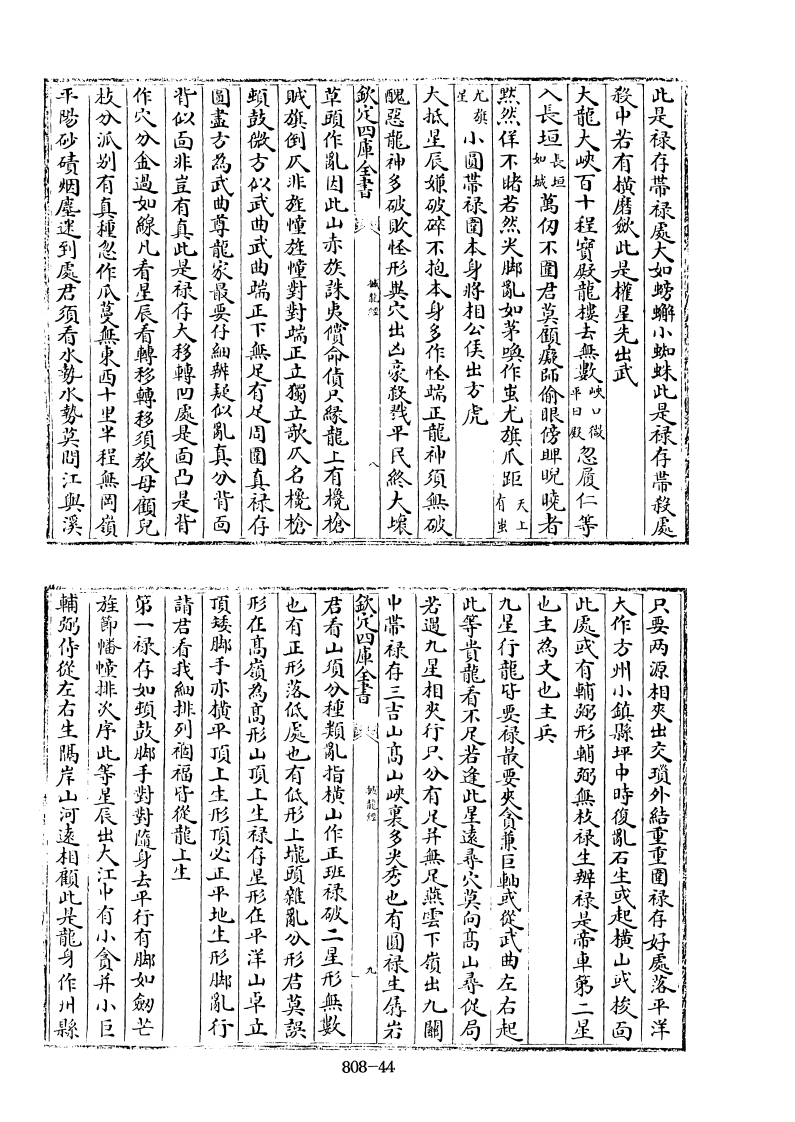 此是禄存帶禄處大如螃蠏小蜘蛛此是禄存帶殺處
殺中若有橫磨劒此是權星先出武
大龍大峽百十程寳殿龍樓去無數峽口微平曰殿忽履仁等
入長垣長垣如城萬仞不圍君莫顧癡師偷眼傍睥睨曉者
黙然佯不睹若然尖脚亂如茅喚作蚩尤旗爪距天上有蚩
尤旗星小圓帶禄圍本身將相公侯出方虎
大抵星辰嫌破碎不抱本身多作怪端正龍神須無破
醜惡龍神多破敗怪形異穴出凶豪殺戮平民終大壞
欽定四庫全書 撼龍經 八
草頭作亂因此山赤族誅夷償命債只縁龍上有欃槍
賊旗倒仄非旌幢旌幢對對端正立獨立欹仄名欃槍
頓鼓微方似武曲武曲端正下無足有足周圍真禄存
圓盡方為武曲尊龍家最要仔細辨疑似亂真分背面
背似面非豈有真此是禄存大移轉凹處是面凸是背
作穴分金過如線凡看星辰看轉移轉移須教母顧兒
枝分派别有真種忽作瓜蔓無東西十里半程無岡嶺
平陽砂磧烟塵迷到處君須看水勢水勢莫問江與溪
只要两源相夾出交瑣外結重重圍禄存好處落平洋
大作方州小鎮縣坪中時復亂石生或起橫山或梭面
此處或有輔弼形輔弼無枝禄生辦禄是帝車第二星
也主為文也主兵
九星行龍皆要禄最要夾貪兼巨軸或從武曲左右起
此等貴龍看不足若逢此星逺尋穴莫向髙山尋促局
若遇九星相夾行只分有足并無足燕雲下嶺出九關
中帶禄存三吉山髙山峽裏多尖秀也有圓禄生孱岩
欽定四庫全書 撼龍經 九
君看山須分種類亂指橫山作正班禄破二星形無數
也有正形落低處也有低形上壠頭雜亂分形君莫誤
形在髙嶺為髙形山頂上生禄存星形在平洋山卓立
頂矮脚手亦橫平頂上生形頂必正平地生形脚亂行
請君看我細排列禍福皆從龍上生
第一禄存如頓鼓脚手對對隨身去平行有脚如劒芒
旌節幡幢排次序此等星辰出大江中有小貪并小巨
輔弼侍從左右生隔岸山河逺相顧此是龍身作州縣
808-44